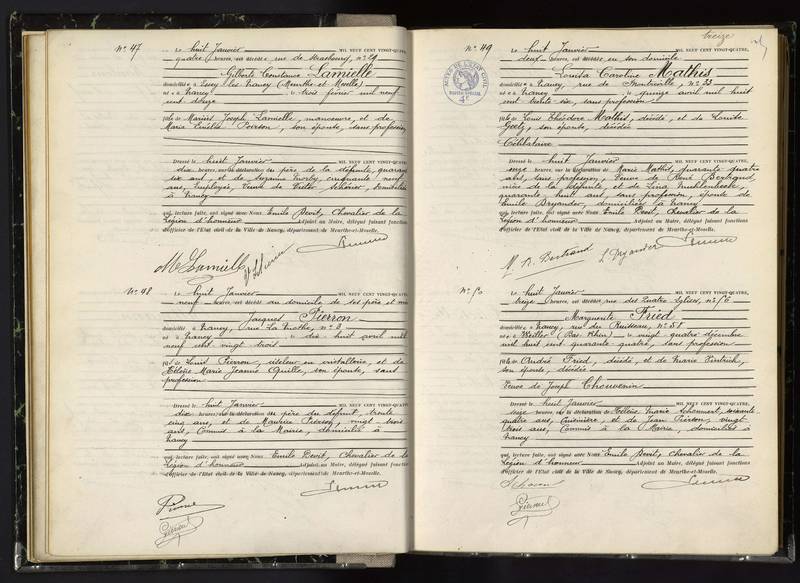 N° 47
Le huit Janvier MIL NEUF CENT VINGT-QUATRE,
quatre heures, est décédé rue de Strasbourg, n° 29
Gilberte Constance Lamielle
domiciliée à Essey les Nancy (Meurthe et Moselle)
née à Nancy le trois février mil neuf
cent douze
fille de Joseph Lamielle, manoeuvre, et de
Marie Poirson, son épouse, sans profession
Dressé le huit Janvier MIL NEUF CENT VINGT-QUATRE,
dix heures, sur la déclaration du père de la défunte, quarante
six ans, et de cinquante neuf
ans, employée, Veuve de Victor domiciliée
à Nancy
qui, lecture faite, ont signé avec Nous Emile Devit, Chevalier de la
Légion d'honneur Adjoint au Maire, délégué faisant fonctions
d'officier de l'État civil de la Ville de Nancy, département de Meurthe-et-Moselle.
M Lamielle
N° 48
Le huit Janvier MIL NEUF CENT VINGT-QUATRE,
neuf heures, est décédé au domicile de ses père et mère
Jacques Pierron
domicilié à Nancy, rue La Mothe, n° 3
né à Nancy le dix huit avril mil
neuf cent vingt trois
fils de Louis Pierron, ciseleur en cristallerie, et de
Marie Jeanne son épouse, sans
profession
Dressé le huit Janvier MIL NEUF CENT VINGT-QUATRE,
dix heures, sur la déclaration du père du défunt, trente
cinq ans, et de Maurice Pierson, vingt trois
ans, Commis à la Mairie, domiciliés à
Nancy
qui, lecture faite, ont signé avec Nous Emile Devit, Chevalier de la
Légion d'honneur Adjoint au Maire, délégué faisant fonctions
d'officier de l'État civil de la Ville de Nancy, département de Meurthe-et-Moselle.
treize
N° 49
ACTES DE L'ÉTAT CIVIL
Le huit Janvier MIL NEUF CENT VINGT-QUATRE,
deux heures, est décédée en son domicile
Louise Caroline Mathis
domiciliée à Nancy, rue de n° 33
née à Nancy le quinze avril mil huit
cent trente six, sans profession
fille de Louis Théodore Mathis, décédé, et de Louise
son épouse, décédée
Célibataire
Dressé le huit Janvier MIL NEUF CENT VINGT-QUATRE,
seize heures, sur la déclaration de Marie Mathis, quarante quatre
ans, sans profession, Veuve de René Bertrand,
nièce de la défunte, et de
quarante huit ans, sans profession, épouse de
Emile domiciliées à Nancy
qui, lecture faite, ont signé avec Nous Emile Devit, Chevalier de la
Légion d'honneur Adjoint au Maire, délégué faisant fonctions
d'officier de l'État civil de la Ville de Nancy, département de Meurthe-et-Moselle.
M. R. Bertrand
N° 50
Le huit Janvier MIL NEUF CENT VINGT-QUATRE,
treize heures, est décédée rue des Quatre Eglises, n° 56
Marguerite Fried
domiciliée à Nancy, rue du Ruisseau, n° 51
née à Weiller (Bas Rhin) le vingt quatre décembre
mil huit cent quarante quatre, sans profession
fille de André Fried, décédé, et de Marie
son épouse, décédée
Veuve de Joseph Chouvenin
Dressé le huit Janvier MIL NEUF CENT VINGT-QUATRE,
seize heures, sur la déclaration de Marie soixante
quatre ans, et de Jean Pierson, vingt
trois ans, Commis à la Mairie, domiciliés à
Nancy
qui, lecture faite, ont signé avec Nous Emile Devit, Chevalier de la
Légion d'honneur Adjoint au Maire, délégué faisant fonctions
d'officier de l'État civil de la Ville de Nancy, département de Meurthe-et-Moselle.